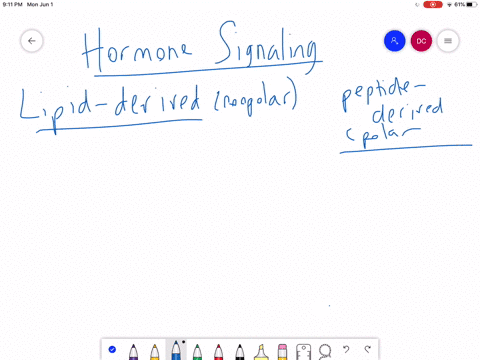 9:11 PM Mon Jun 1
61%
DC
Hormone Signaling
Lipid-derived (nonpolar)
peptide-
derived
(polar